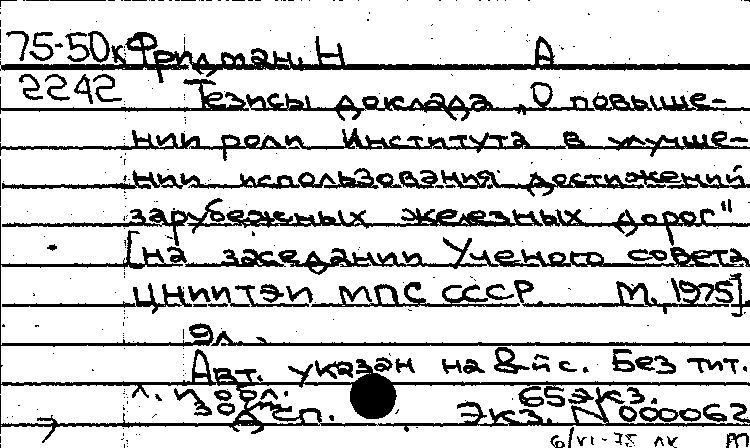 75-50к Фридман, Н А
2242 Тезисы доклада „О повыше-
нии роли Института в улучше-
нии использования достижений
зарубежных железных дорог"
[на заседании Ученого совета
ЦНИИТЭИ МПС СССР. М., 1975]
9л.
Авт. указан на 8-й с. Без тит.
л. и обл. 65экз.
ДСП. Экз. N 000062
6/VI-75